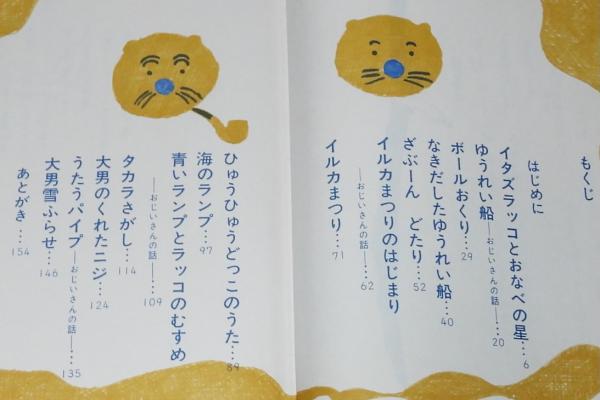 もくじ
はじめに
イタズラッコとおなべの星…6
ゆうれい船―おじいさんの話―…20
ボールおくり…29
なきだしたゆうれい船…40
ざぶーん どたり…52
イルカまつりのはじまり
―おじいさんの話―…62
イルカまつり…71
ひゅうひゅうどっこのうた…89
海のランプ…97
青いランプとラッコのむすめ
―おじいさんの話―…109
タカラさがし…114
大男のくれたニジ…124
うたうパイプ―おじいさんの話―…135
大男雪ふらせ…146
あとがき…154